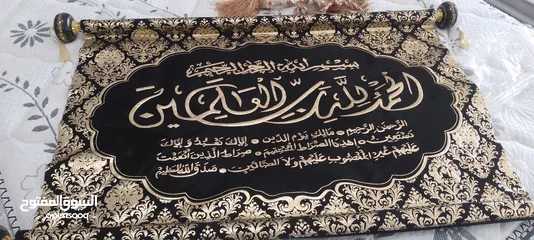 بسم الله الرحمن الرحيم
الحمد لله رب العالمين
الرحمن الرحيم مالك يوم الدين إياك نعبد وإياك
نستعين اهدنا الصراط المستقيم صراط الذين أنعمت
عليهم غير المغضوب عليهم ولا الضالين صدق الله العظيم
السوق المفتوح
opensooq.com